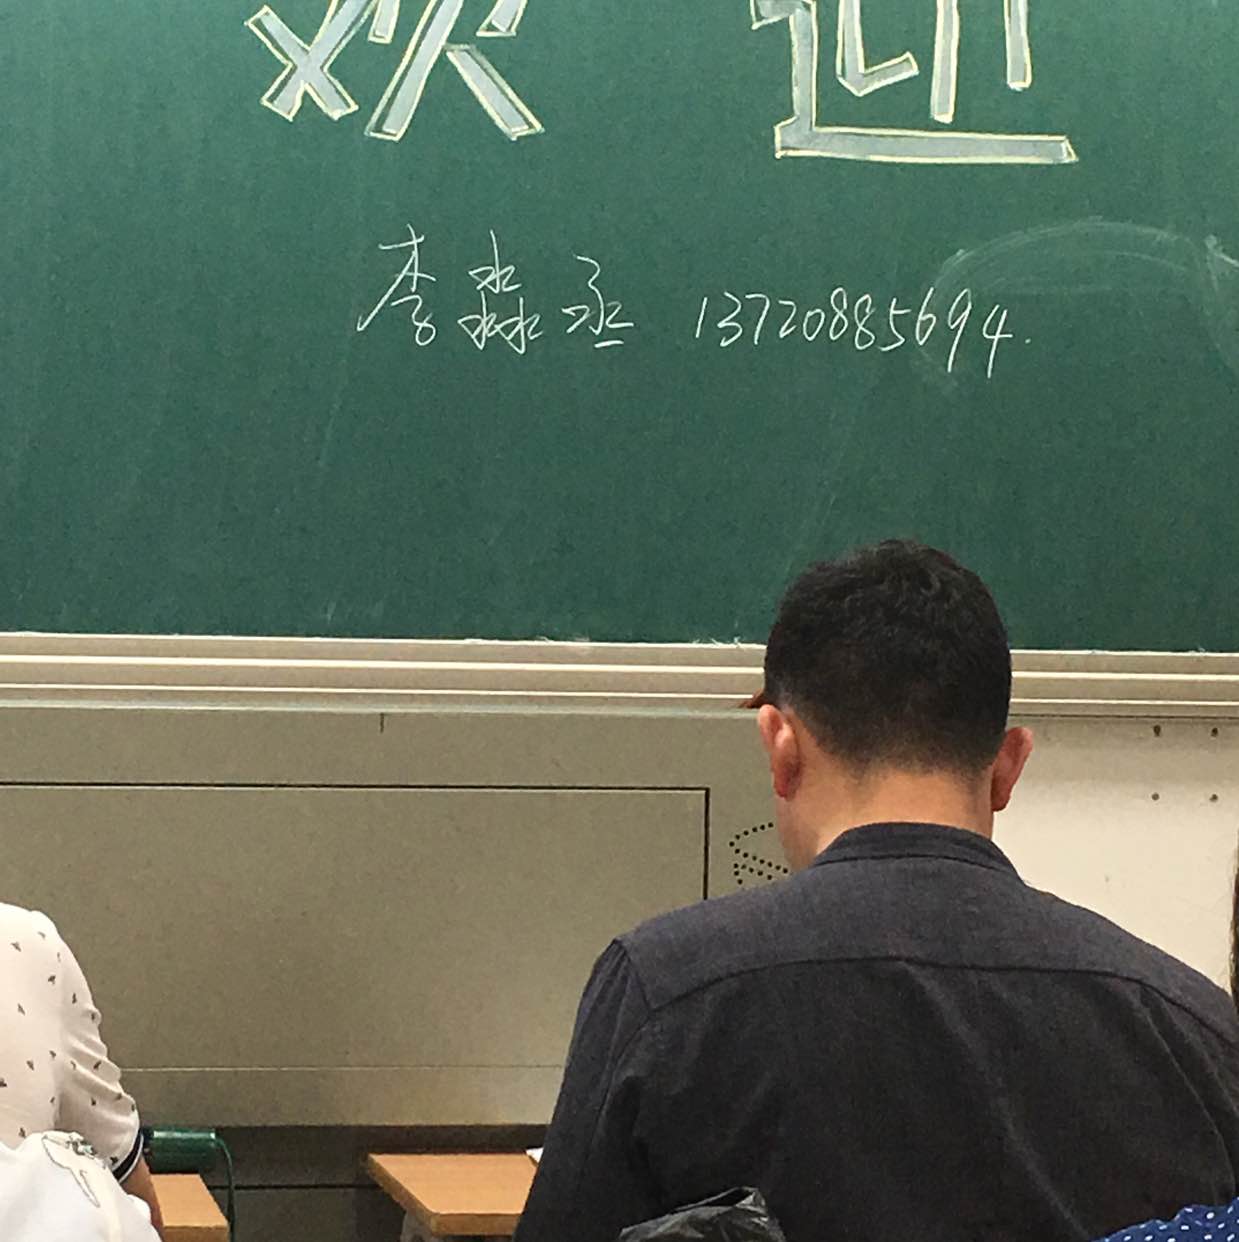 欢迎
李淼丞 13720885694.